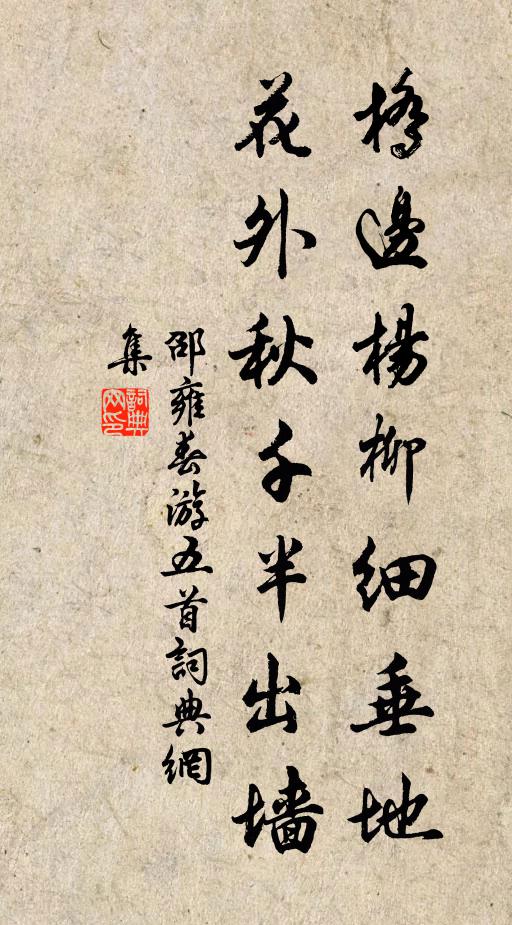 橋邊楊柳細垂地
花外秋千半出墻
邵雍春游五首詞典網
集
詞典
网印